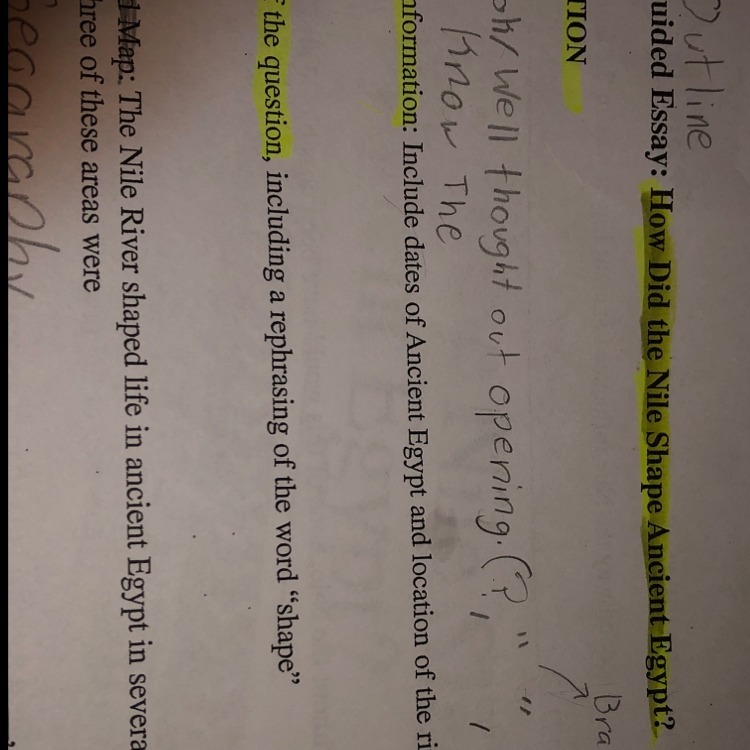 Outline
uided Essay: How Did the Nile Shape Ancient Egypt?
Bra
TION
ok/ Well thought out opening. (?, " "
Know The
nformation: Include dates of Ancient Egypt and location of the ri
f the question, including a rephrasing of the word “shape”
d Map: The Nile River shaped life in ancient Egypt in severa
hree of these areas were
eography